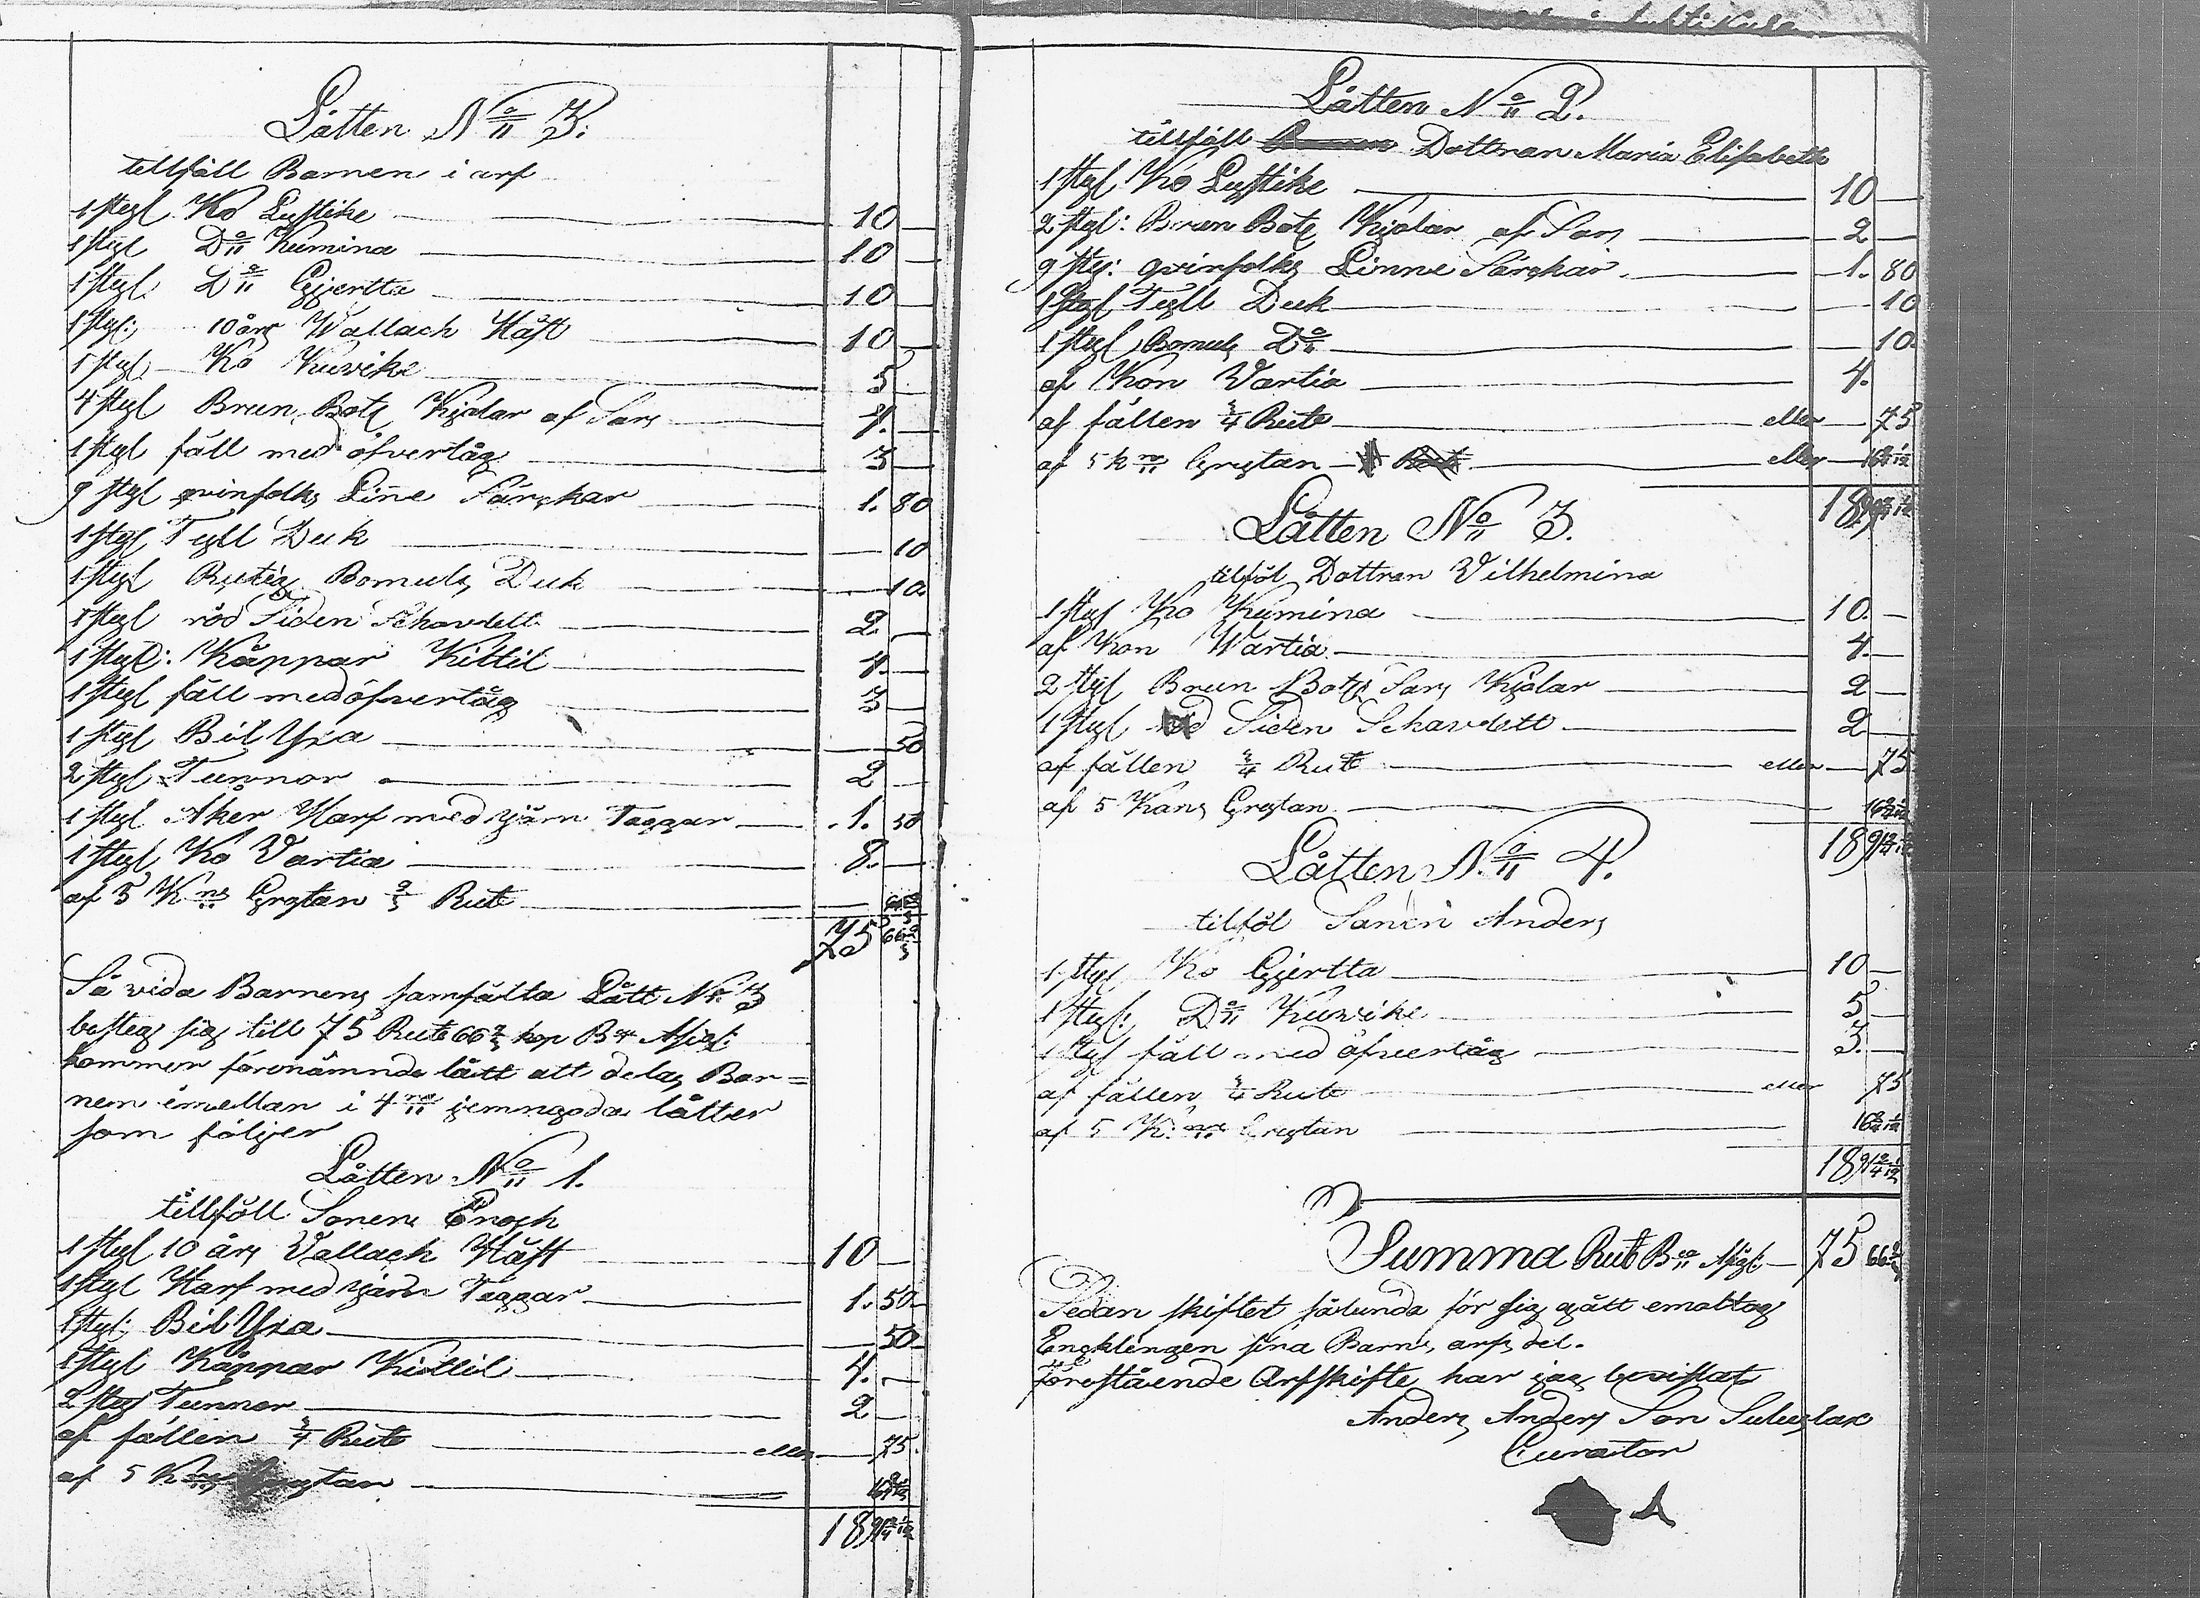 Låtten No 3.
tillföll Barnen i arf
1 styk Ko Lystike 10 —
1 styk Do Kumina 10 —
1 styk Do Gjertta 10 —
1 styk: 10 års Wallach Häst 10 —
1 styk Ko Kuvike 5 —
4 styk Brun Bots Kjolar af Sars 4. —
1 styk fäll med öfvertåg 3 —
9 styk qvinfolks Linne Särckar 1. 80
1 styk Tyll Duk — 10
1 styk Rutig Bomuls Duk — 10
1 styk röd Siden Schavlett 2. —
1 styk: Kåppar Kittil 4. —
1 styk fäll med öfvertåg 3 —
1 styk Bil Yxa — 50
2 styk Tunnor 2 —
1 styk Åker Harf med järn Taggar 1. 50
1 styk Ko Vartia 8. —
af 5 Kns Grytan 2/3 Rub 66 2/3
75 66 2/3
Så vida Barnens samfälta Lått No 3
besteg sig till 75 Rub 66 2/3 kop
kommer förenämnde lått att delas Bar=
nen emellan i 4 jemngoda låtter
som följer
Låtten No 1.
tillföll Sonen Enoch
1 styk 10 års Vallach Häst 10 —
1 styk Harf med järn Taggar 1. 50
1 styk: Bil Yxa — 50
1 styk Kåppar Kittil 4. —
2 styk Tunnor 2 —
af fällen 3/4 Rub eller — 75.
af 5 Grytan
18
Låtten No 2.
tillföll Dottran Maria Elisabeth
1 styk Ko Lystike 10 —
2 styk: Brun Bots Kjolar af Sars 2 —
9 sty: qvinfolks Linne Särckar 1. 80
1 styk Tyll Duk — 10
1 styk Bomuls Do — 10.
af Kon Vartia 4.
af fällen 3/4 Rub eller — 75
af 5 k Grytan eller
18
Låtten No 3.
tilföl Dottran Vilhelmina
1 styk Ko Kumina 10. —
af Kon Wartia 4. —
2 styk Brun Bots Sars Kjolar 2 —
1 styk röd Siden Schavlett 2 —
af fällen 3/4 Rub eller — 75
af 5 Kans Grytan
18
Låtten No 4.
tilföl Sonen Anders
1 styk Ko Gjertta 10 —
1 styk: Do Kuvike 5 —
1 styk fäll med öfvertåg 3. —
af fällen 3/4 Rub eller 75
af 5 K: Grytan
18
Summa Rub 75 66 2/3
Sedan skiftet sålunda för sig gått emottog
Encklingen sina Barns arfs del.
Förestående Arfskifte har jag bevistat
Anders Anders Son
Curator